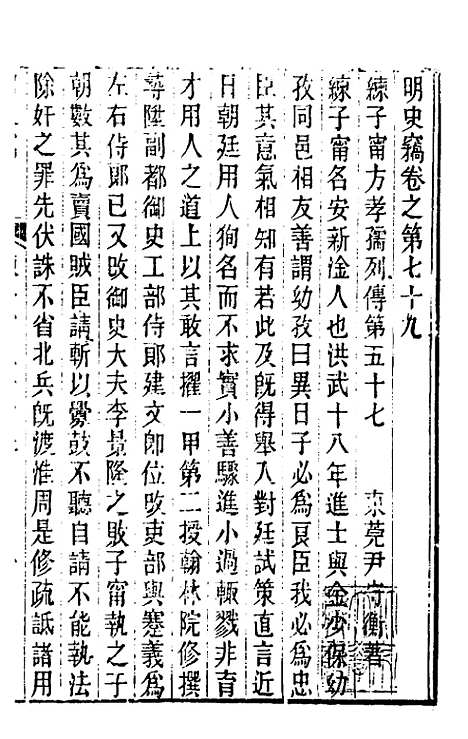 明史竊卷之第七十九
練子甯方孝孺列傳第五十七　東莞尹守衡著
練子甯名安新淦人也洪武十八年進士與金少保幼
孜同邑相友善謂幼孜曰異日子必為良臣我必為忠
臣其意氣相知有若此及旣得舉入對廷試策直言近
日朝廷用人狥名而不求實小善驟進小過輒戮非育
才用人之道上以其敢言擢一甲第二授翰林院修撰
尋陞副都御史工部侍郞建文卽位改吏部與蹇義為
左右侍郞已又改御史大夫李景隆之敗子甯執之于
朝數其為賣國賊臣請斬以釁鼓不聽自請不能執法
除奸之罪先伏誅不省北兵旣渡惟周是修疏詆諸用